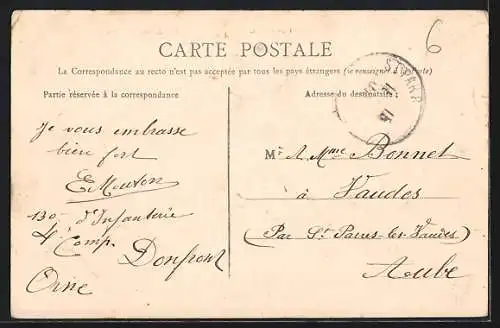 6
CARTE POSTALE
La Correspondance au recto n'est pas acceptée par tous les pays étrangers (se renseigner à la Poste)
Partie réservée à la correspondance
Adresse du destinataire :
Je vous embrasse
bien fort
E Mouton
130e d'Infanterie
4e Comp.
Donfront
Orne
Mr & Mme Bonnet
à Vaudes
(Par St Parres-les-Vaudes)
Aube